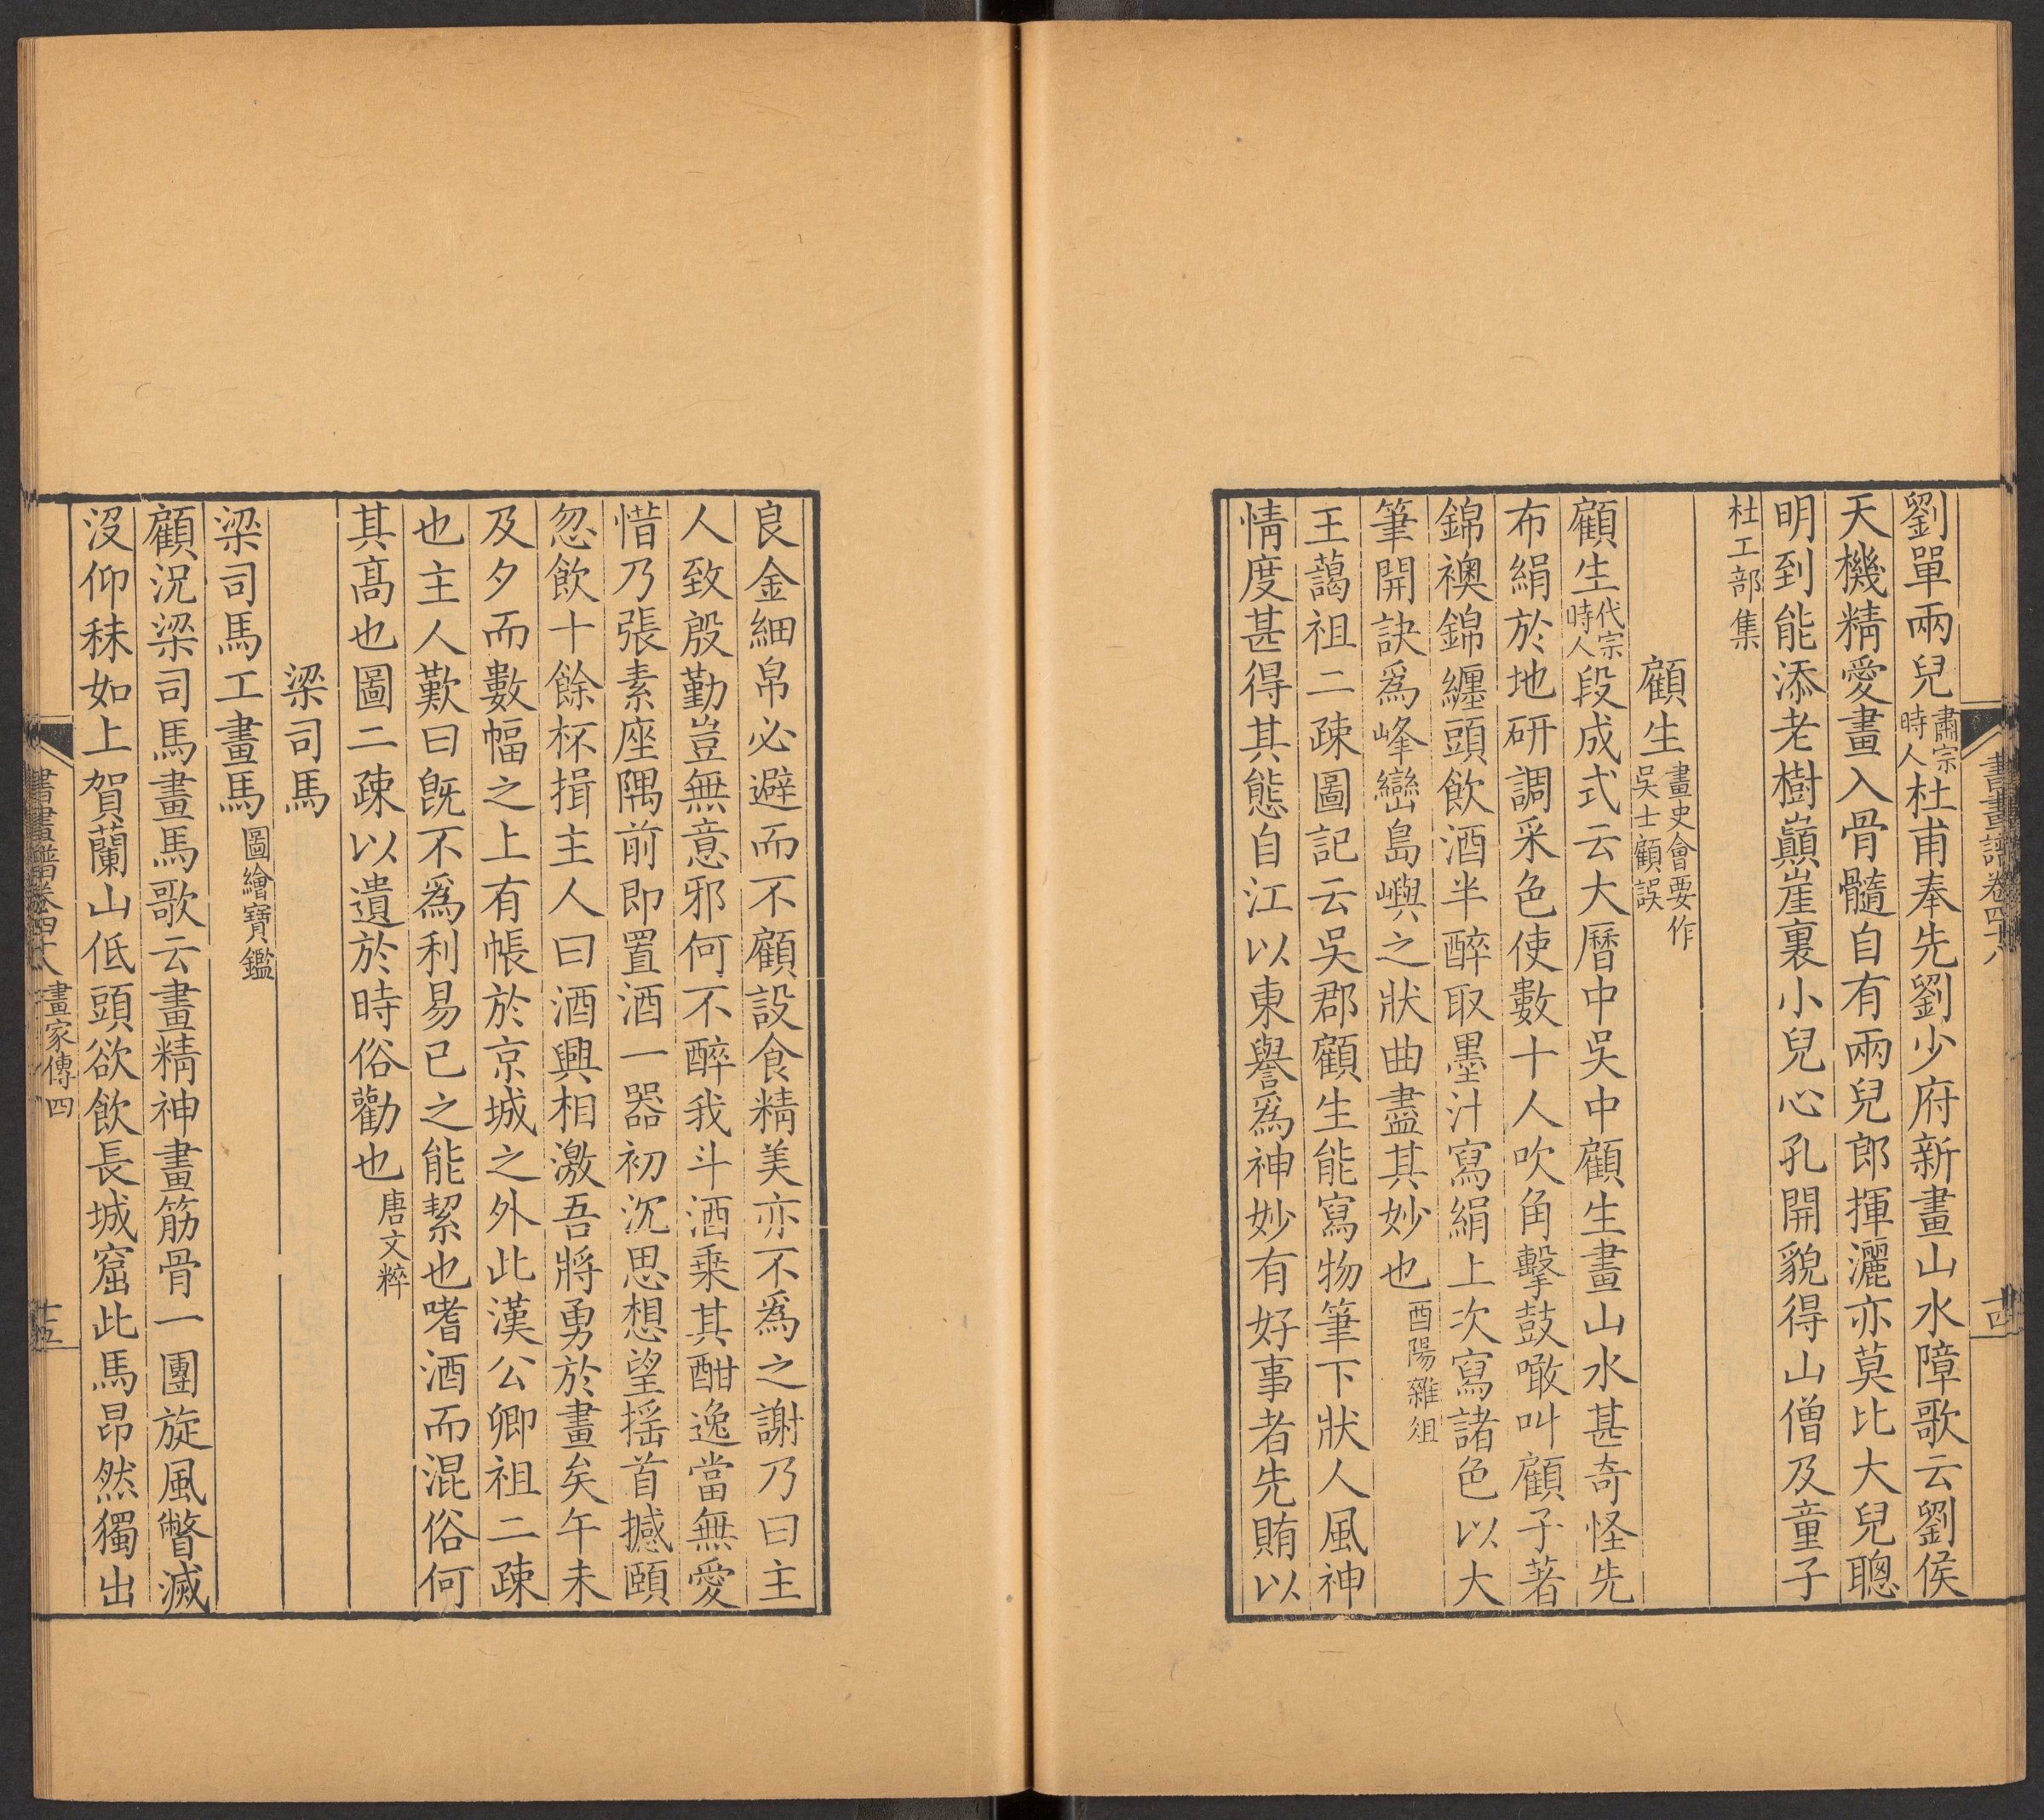 劉單兩兒肅宗時人杜甫奉先劉少府新畫山水障歌云劉侯
天機精愛畫入骨髓自有兩兒郎揮灑亦莫比大兒聰
明到能添老樹巔崖裏小兒心孔開貌得山僧及童子
杜工部集
顧生畫史會要作吳士顧誤
顧生代宗時人段成式云大曆中吳中顧生畫山水甚奇怪先
布絹於地研調采色使數十人吹角擊鼓噉叫顧子著
錦襖錦纏頭飲酒半醉取墨汁寫絹上次寫諸色以大
筆開訣為峰巒島嶼之狀曲盡其妙也酉陽雜俎
王藹祖二疎圖記云吳郡顧生能寫物筆下狀人風神
情度甚得其態自江以東譽為神妙有好事者先賄以
良金細帛必避而不顧設食精美亦不為之謝乃曰主
人致殷勤豈無意邪何不醉我斗酒乗其酣逸當無愛
惜乃張素座隅前即置酒一器初沉思想望揺首撼頤
忽飲十餘杯揖主人曰酒興相激吾將勇於畫矣午未
及夕而數幅之上有帳於京城之外此漢公卿祖二疎
也主人歎曰旣不為利易已之能絜也嗜酒而混俗何
其髙也圖二疎以遺於時俗勸也唐文粹
梁司馬
梁司馬工畫馬圖繪寶鑑
顧況梁司馬畫馬歌云畫精神畫筋骨一團旋風瞥滅
沒仰秣如上賀蘭山低頭欲飲長城窟此馬昂然獨出
書畫譜卷四十八 畫家傳四 十五